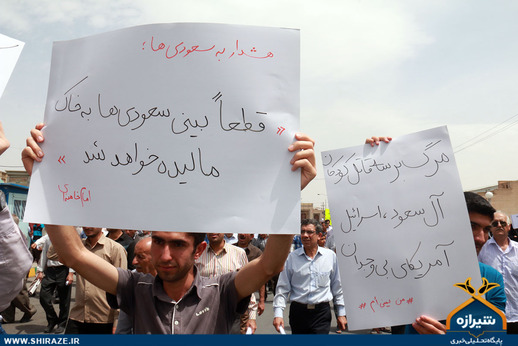 هشدار به سعودی ها؛
« قطعاً بینی سعودی ها به خاک
مالیده خواهد شد »
امام خامنه ای
مرگ بر سه قاتل کودکان
آل سعود، اسرائیل
آمریکای بی وجدان
#من_یمنی_ام#
شیرازه
پایگاه تحلیلی خبری
WWW.SHIRAZE.IR
WWW.SHIRAZE.IR